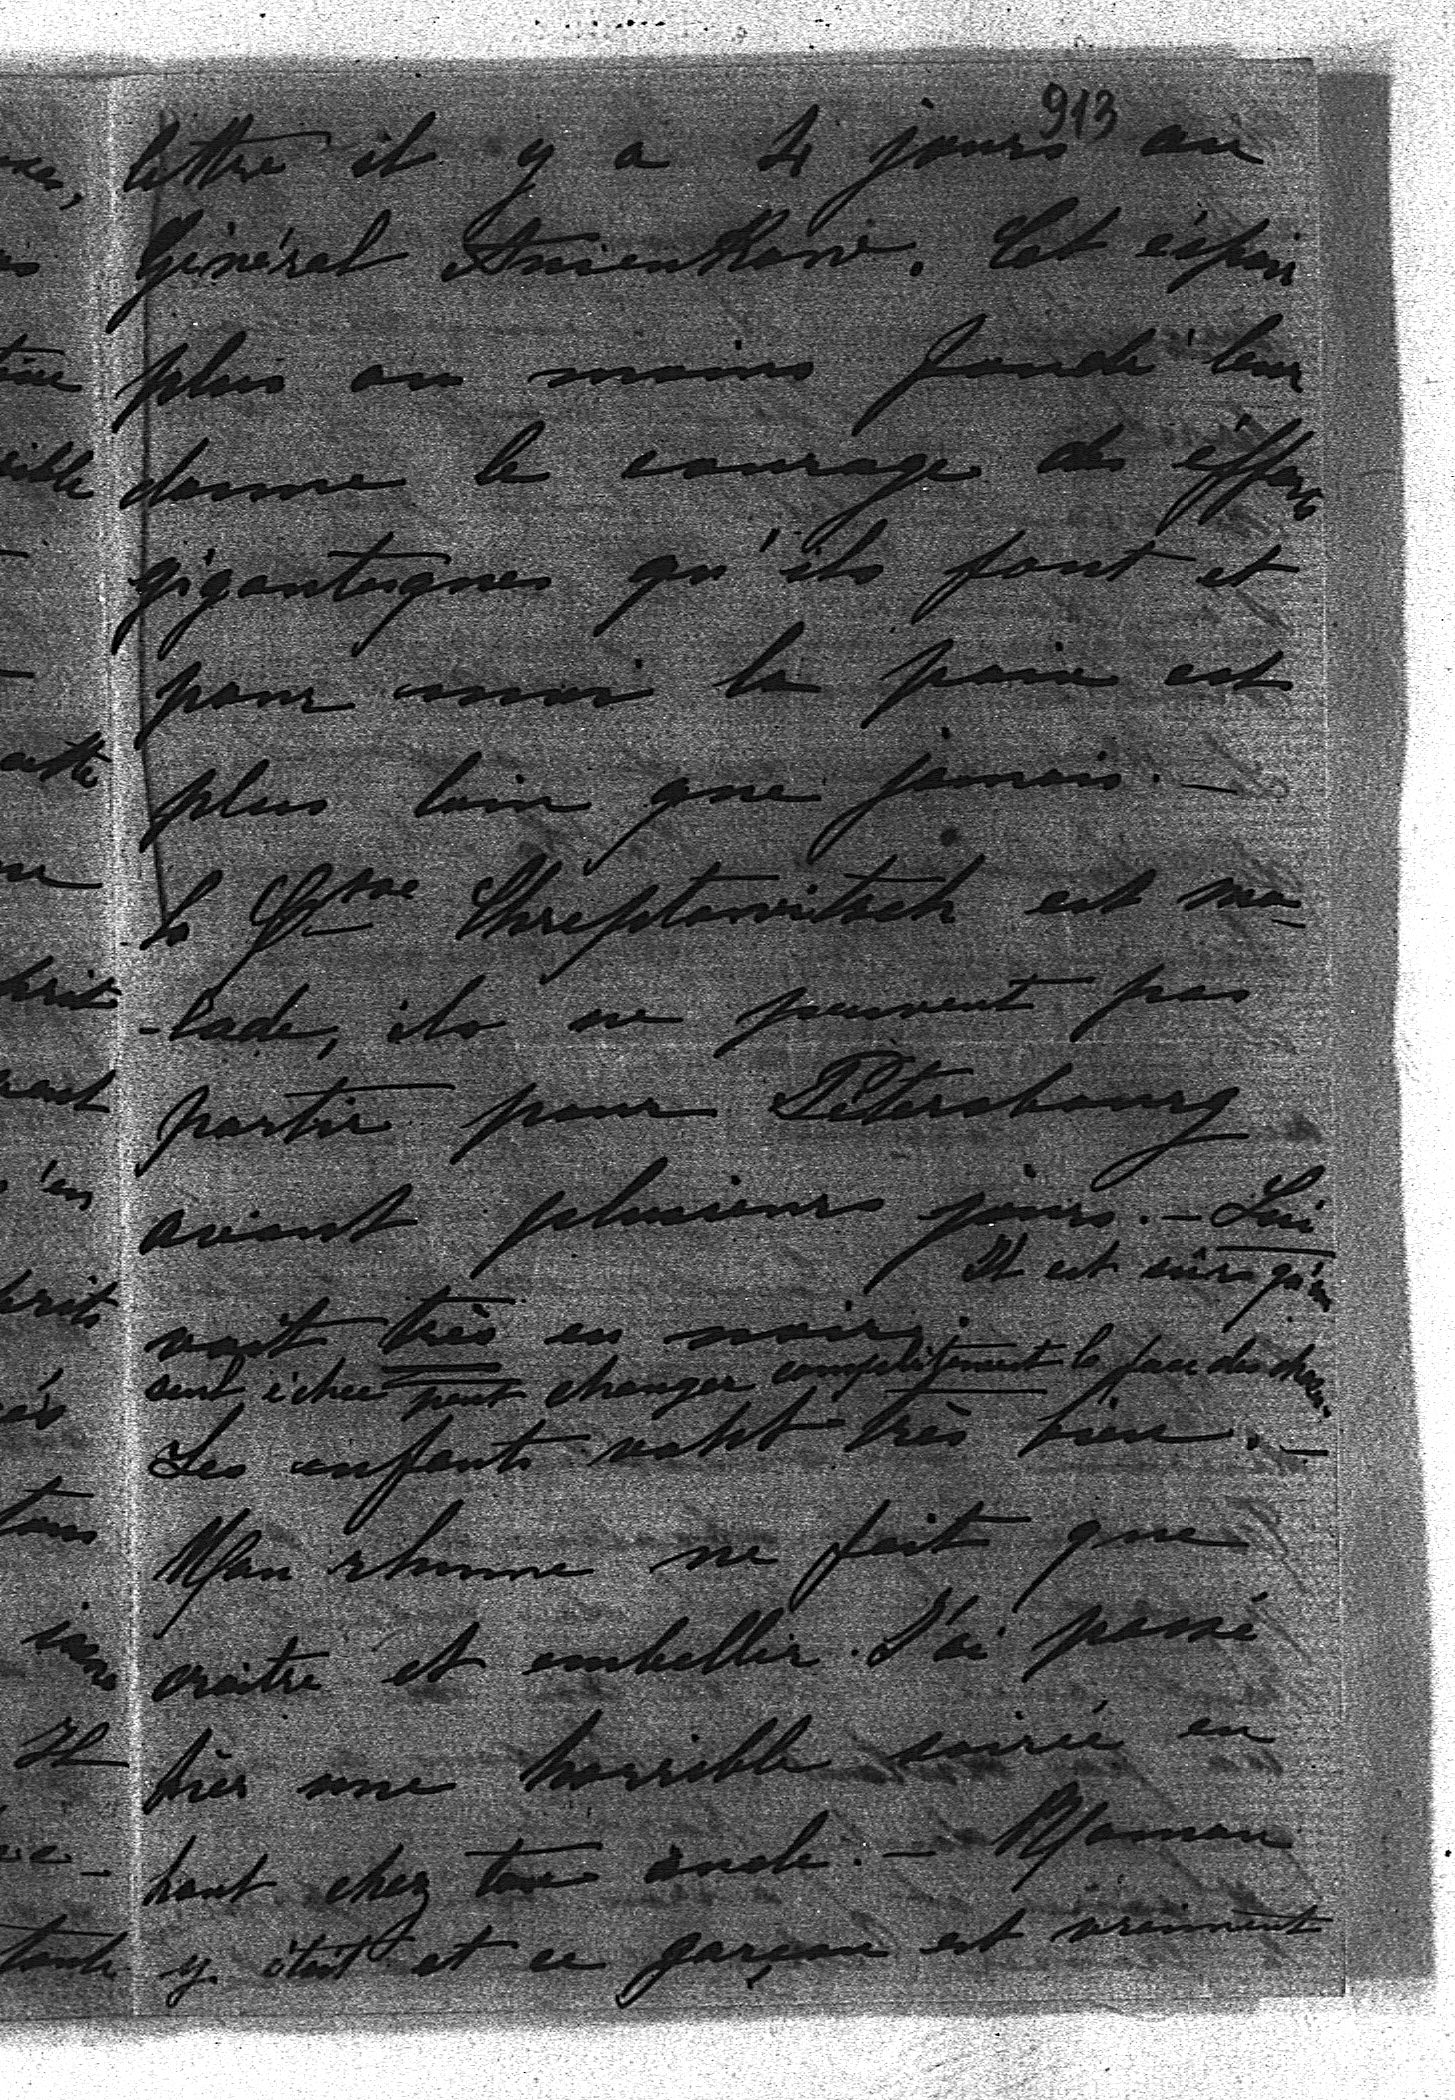 913
lettre il y a 4 jours au
Général Anienkow. Cet éspoir
plus ou moins fondé leur
donne le courage des éfforts
gigantesques qu'ils font et
pour moi la paix est
plus loin que jamais. —
La Csse Chreptowitsch est ma-
-lade, ils ne peuvent pas
partir pour Pétersbourg
avant plusieurs jours. — Lui
voit très en noir. Il est sûr qu'un
seul échec peut changer complètement la face des choses.
Les enfants vont très bien. —
Mon rhume ne fait que
croitre et embellir. J'ai passé
hier une horrible soirée en
haut chez ton oncle. — Maman
y était et ce garçon est vraiment